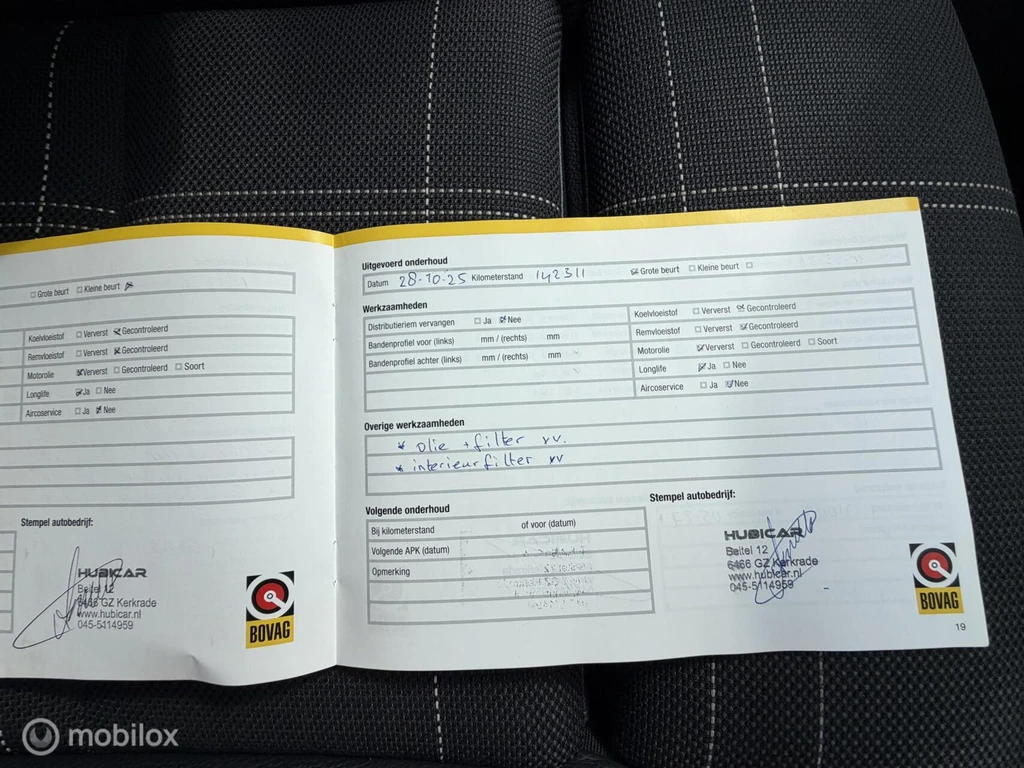 Grote beurt Kleine beurt
Koelvloeistof Ververst Gecontroleerd
Remvloeistof Ververst Gecontroleerd
Motorolie Ververst Gecontroleerd Soort
Longlife Ja Nee
Aircoservice Ja Nee
Stempel autobedrijf:
HUBICAR
Beitel 12
6466 GZ Kerkrade
www.hubicar.nl
045-5114959
BOVAG
Uitgevoerd onderhoud
Datum 28-10-25 Kilometerstand 142311 Grote beurt Kleine beurt
Werkzaamheden
Distributieriem vervangen Ja Nee
Bandenprofiel voor (links) mm / (rechts) mm
Bandenprofiel achter (links) mm / (rechts) mm
Koelvloeistof Ververst Gecontroleerd
Remvloeistof Ververst Gecontroleerd
Motorolie Ververst Gecontroleerd Soort
Longlife Ja Nee
Aircoservice Ja Nee
Overige werkzaamheden
* olie + filter vv.
* interieurfilter vv
Volgende onderhoud
Bij kilometerstand of voor (datum)
Volgende APK (datum)
Opmerking
Stempel autobedrijf:
HUBICAR
Beitel 12
6466 GZ Kerkrade
www.hubicar.nl
045-5114959
BOVAG
19
mobilox